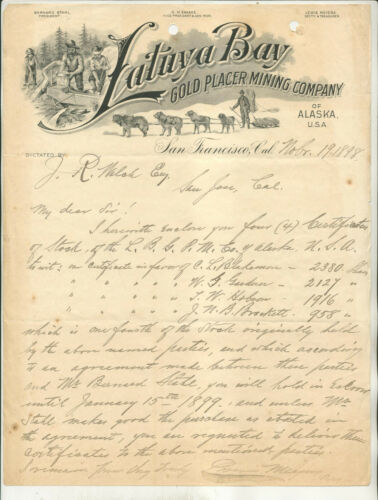 BARNARD STAHL
PRESIDENT
VICE PRESIDENT & GEN. MGR.
LEWIS MEYERS
SECT'Y & TREASURER
Latuya Bay
GOLD PLACER MINING COMPANY
OF
ALASKA,
U.S.A
DICTATED BY
San Francisco, Cal. Nobr. 19, 1898
J. R. Welch Esq
San Jose, Cal.
My dear Sir!
I herewith enclose you four (4) Certificates
of Stock, of the L. B. G. P. M. Co of Alaska, U. S. A
to wit: one certificate in favor of C. L. - 2380 Shares
" " " " W. G. - 2127 "
" " " " T. W. Hobson - 1916 "
" " " " J. N. B. - 958 "
which is one fourth of the Stock originally held
by the above named parties, and which according
to an agreement made between these parties
and Mr Barnard Stahl, you will hold in Escrow
until January 15th 1899, and unless Mr
Stahl makes good the purchase as stated in
the agreement, you are requested to return these
certificates to the above mentioned parties.
I remain yours very truly